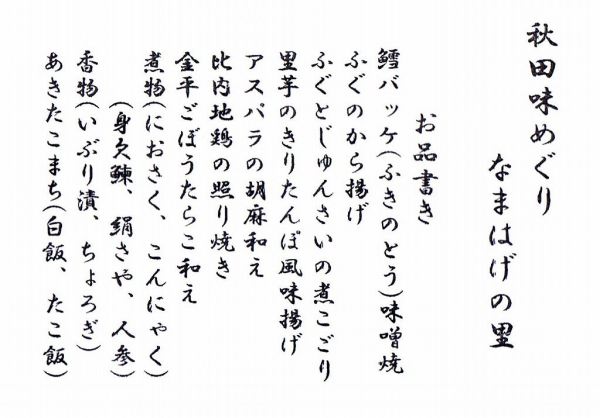 秋田味めぐり
なまはげの里
お品書き
鱈バッケ(ふきのとう)味噌焼
ふぐのから揚げ
ふぐとじゅんさいの煮こごり
里芋のきりたんぽ風味揚げ
アスパラの胡麻和え
比内地鶏の照り焼き
金平ごぼうたらこ和え
煮物(におさく、こんにゃく)
(身欠鰊、絹さや、人参)
香物(いぶり漬、ちょろぎ)
あきたこまち(白飯、たこ飯)